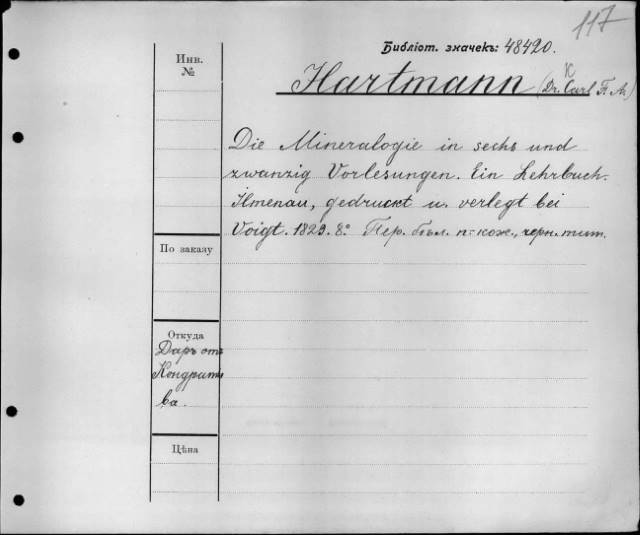 117
Библіот. значекъ: 48420.
Инв.
№
Hartmann (Dr. Carl Fr. A.)
K
Die Mineralogie in sechs und
zwanzig Vorlesungen. Ein Lehrbuch.
Ilmenau, gedruckt u. verlegt bei
Voigt. 1829. 8.° Пер. бѣл. п=кож., черн. тит.
По заказу
Откуда
Даръ отъ
Кондратье
ва.
Цѣна